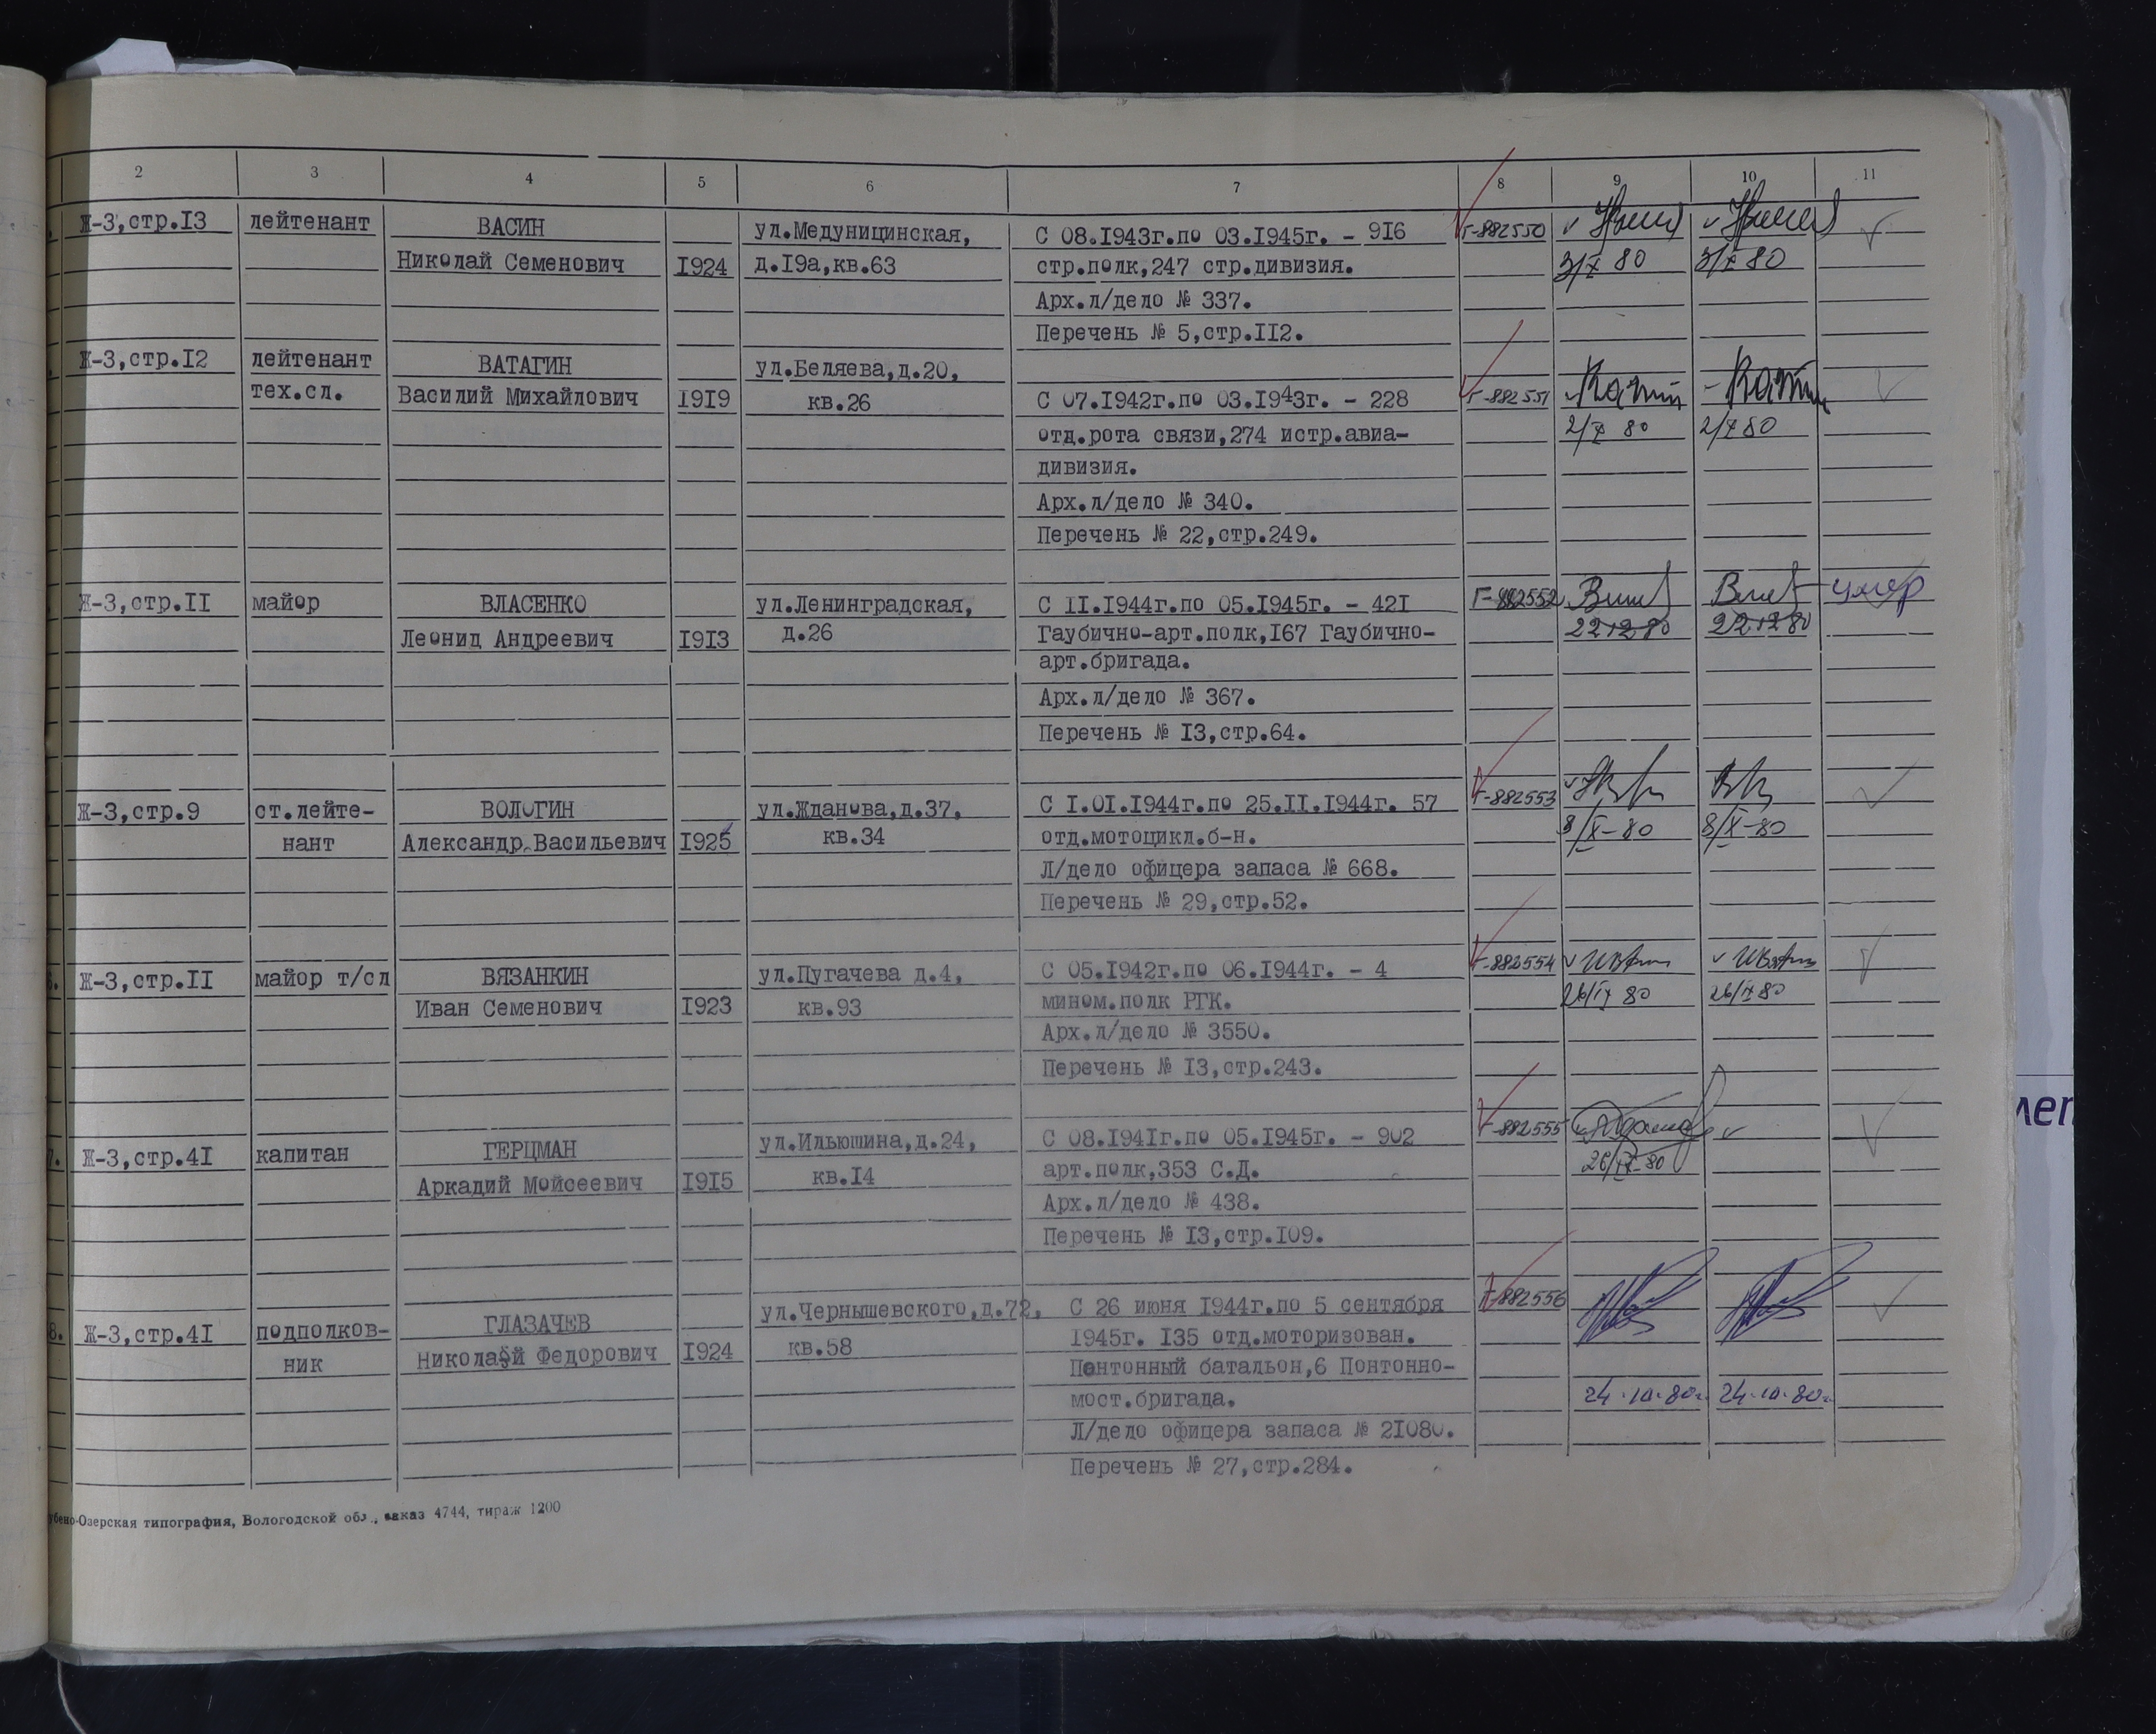 2 3 4 5 6 7 8 9 10 11
Ж-3,стр.I3 лейтенант ВАСИН ул.Медуницинская, С 08.I943г.по 03.I945г. - 9I6 Г-882550
Николай Семенович I924 д.I9а,кв.63 стр.полк,247 стр.дивизия. 3/X 80 3/X 80
Арх.л/дело № 337.
Перечень № 5,стр.II2.
Ж-3,стр.I2 лейтенант ВАТАГИН ул.Беляева,д.20,
тех.сл. Василий Михайлович I9I9 кв.26 С 07.I942г.по 03.I943г. - 228 Г-882551
отд.рота связи,274 истр.авиа- 2/X 80 2/X 80
дивизия.
Арх.л/дело № 340.
Перечень № 22,стр.249.
Ж-3,стр.II майор ВЛАСЕНКО ул.Ленинградская, С II.I944г.по 05.I945г. - 42I Г-882552 умер
Леонид Андреевич I9I3 д.26 Гаубично-арт.полк,I67 Гаубично- 22 12 80 22 12 80
арт.бригада.
Арх.л/дело № 367.
Перечень № I3,стр.64.
Ж-3,стр.9 ст.лейте- ВОЛОГИН ул.Жданова,д.37, С I.0I.I944г.по 25.II.I944г. 57 Г-882553
нант Александр Васильевич I925 кв.34 отд.мотоцикл.б-н. 8/X-80 8/X-80
Л/дело офицера запаса № 668.
Перечень № 29,стр.52.
Ж-3,стр.II майор т/сл ВЯЗАНКИН ул.Пугачева д.4, С 05.I942г.по 06.I944г. - 4 Г-882554
Иван Семенович I923 кв.93 мином.полк РГК. 26/IX 80 26/IX 80
Арх.л/дело № 3550.
Перечень № I3,стр.243.
7. Ж-3,стр.4I капитан ГЕРЦМАН ул.Ильюшина,д.24, С 08.I94Iг.по 05.I945г. - 902 Г-882555
Аркадий Мойсеевич I9I5 кв.I4 арт.полк,353 С.Д. 26/IX-80
Арх.л/дело № 438.
Перечень № I3,стр.I09.
8. Ж-3,стр.4I подполков- ГЛАЗАЧЕВ ул.Чернышевского,д.72, С 26 июня I944г.по 5 сентября Г-882556
ник Николай Федорович I924 кв.58 I945г. I35 отд.моторизован.
Понтонный батальон,6 Понтонно-
мост.бригада. 24.10.80г. 24.10.80г.
Л/дело офицера запаса № 2I080.
Перечень № 27,стр.284.
Озерская типография, Вологодской обл., заказ 4744, тираж 1200